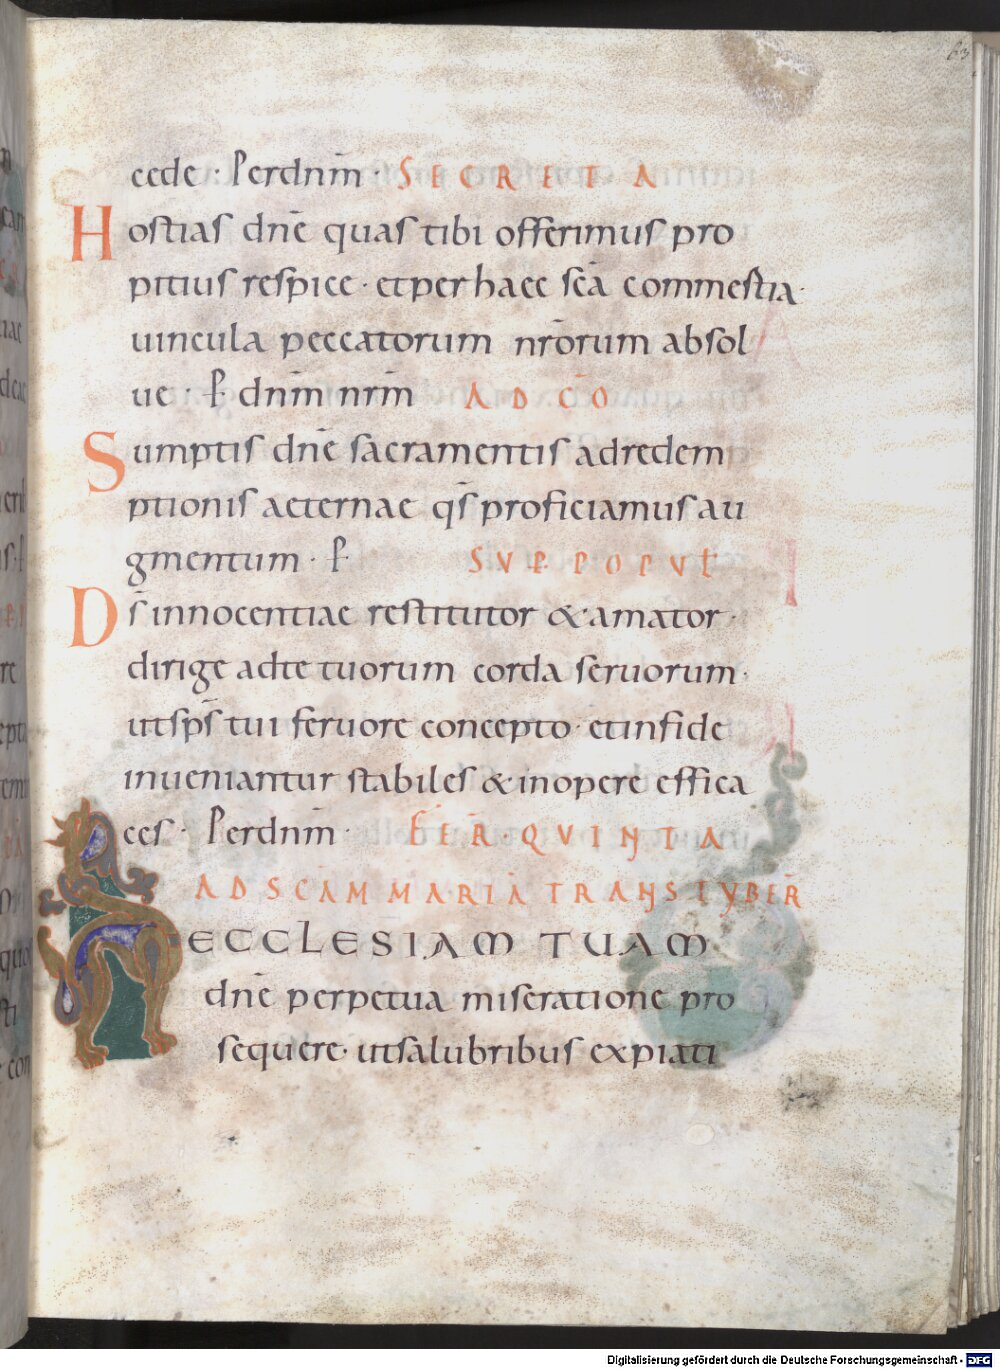 63
cede · Perdnm̄ · SECRETA
Hostias dnē quas tibi offerimus pro
pitius respice · et per haec scā commestia ·
uincula peccatorum nrōrum absol
ue · P dnm̄ nrm̄ AD CŌ
Sumptis dnē sacramentis ad redem
ptionis aeternae qs̄ proficiamus au
gmentum · P SVP POPVL
Ds̄ innocentiae restitutor & amator ·
dirige ad te tuorum corda seruorum ·
ut sps̄ tui feruore concepto · et in fide
inueniantur stabiles & in opere effica
ces · Perdnm̄ · FER̄ · QVINTA
AD SCAM MARIĀ TRANS TYBER̄
ECCLESIAM TUAM
dnē perpetua miseratione pro
sequere · ut salubribus expiati
Digitalisierung gefördert durch die Deutsche Forschungsgemeinschaft - DFG